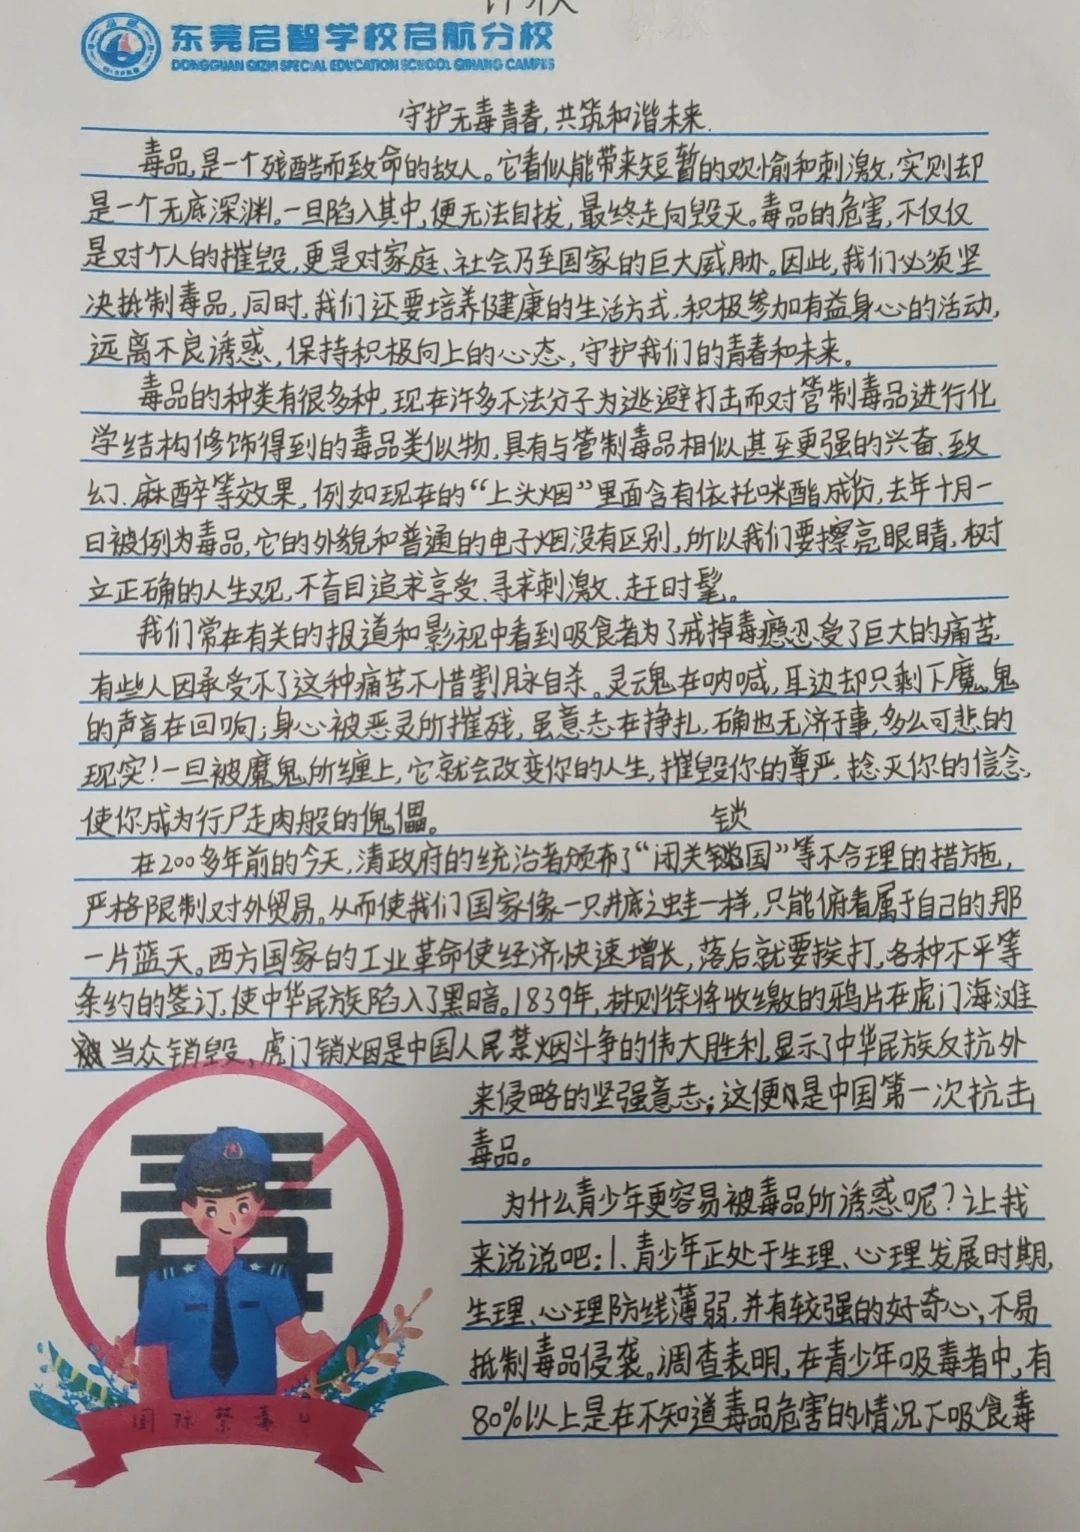 东莞启智学校启航分校
DONGGUAN QIZHI SPECIAL EDUCATION SCHOOL QIHANG CAMPUS
守护无毒青春,共筑和谐未来.
毒品,是一个残酷而致命的敌人。它看似能带来短暂的欢愉和刺激,实则却
是一个无底深渊。一旦陷入其中,便无法自拔,最终走向毁灭。毒品的危害,不仅仅
是对个人的摧毁,更是对家庭、社会乃至国家的巨大威胁。因此,我们必须坚
决抵制毒品,同时,我们还要培养健康的生活方式,积极参加有益身心的活动,
远离不良诱惑,保持积极向上的心态,守护我们的青春和未来。
毒品的种类有很多种,现在许多不法分子为逃避打击而对管制毒品进行化
学结构修饰得到的毒品类似物,具有与管制毒品相似甚至更强的兴奋、致
幻、麻醉等效果,例如现在的“上头烟”里面含有依托咪酯成份,去年十月一
日被例为毒品,它的外貌和普通的电子烟没有区别,所以我们要擦亮眼睛,树
立正确的人生观,不盲目追求享受、寻求刺激、赶时髦。
我们常在有关的报道和影视中看到吸食者为了戒掉毒瘾忍受了巨大的痛苦
有些人因承受不了这种痛苦不惜割脉自杀。灵魂在呐喊,耳边却只剩下魔鬼
的声音在回响;身心被恶灵所摧残,虽意志在挣扎,确也无济于事,多么可悲的
现实!一旦被魔鬼所缠上,它就会改变你的人生,摧毁你的尊严,捻灭你的信念,
使你成为行尸走肉般的傀儡。
锁
在200多年前的今天,清政府的统治者颁布了“闭关国”等不合理的措施,
严格限制对外贸易。从而使我们国家像一只井底之蛙一样,只能俯看属于自己的那
一片蓝天。西方国家的工业革命使经济快速增长,落后就要挨打,各种不平等
条约的签订,使中华民族陷入了黑暗。1839年,林则徐将收缴的鸦片在虎门海滩
当众销毁,虎门销烟是中国人民禁烟斗争的伟大胜利,显示了中华民族反抗外
来侵略的坚强意志;这便是中国第一次抗击
毒品。
为什么青少年更容易被毒品所诱惑呢?让我
来说说吧:1、青少年正处于生理、心理发展时期,
生理、心理防线薄弱,并有较强的好奇心,不易
抵制毒品侵袭。调查表明,在青少年吸毒者中,有
80%以上是在不知道毒品危害的情况下吸食毒
国际禁毒日